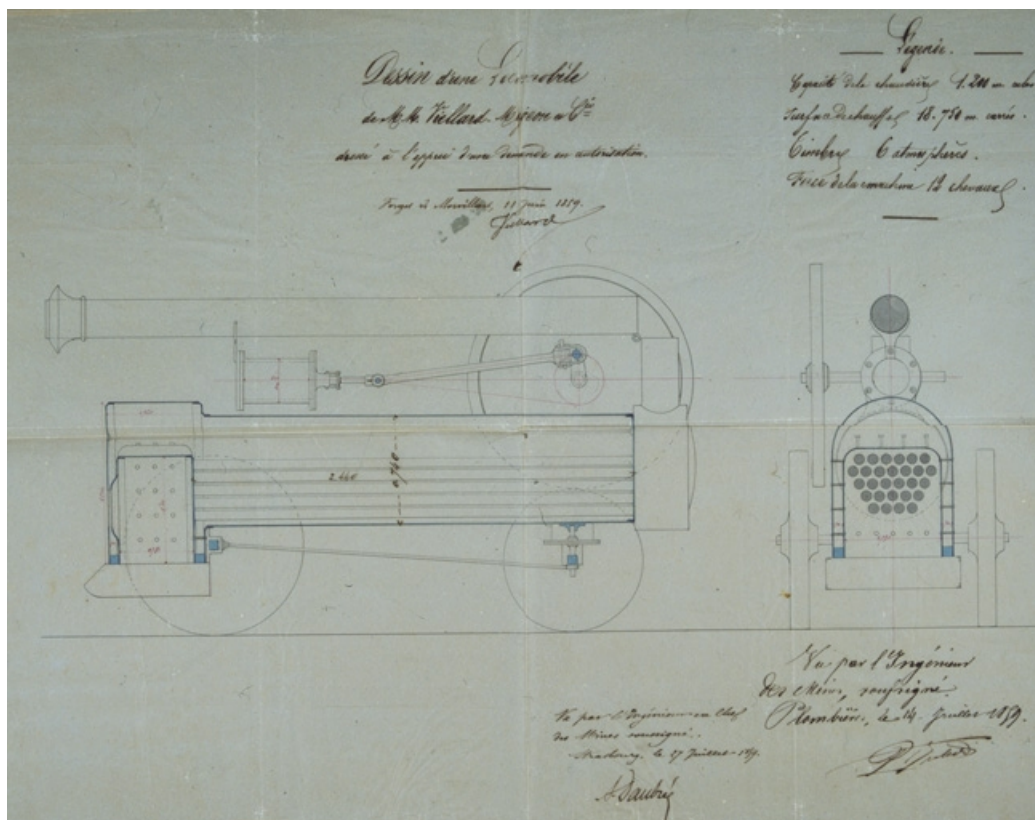 Dessin d'une Locomobile
de M.M. Viellard-Migeon & Cie
dressé à l'appui d'une demande en autorisation.
Forges de Morvillars, 11 Juin 1859.
Viellard
Légende.
Capacité de la chaudière 1.200 m cube
Surface de chauffe 18.750 m. carrés.
Timbre 6 atmosphères.
Force de la machine 12 chevaux
2.440
0.740
Vu par l'Ingénieur
des Mines, soussigné.
Plombières, le 14 Juillet 1859.
Vu par l'Ingénieur en Chef
des Mines soussigné.
Strasbourg, le 27 Juillet 1859.
Daubrée